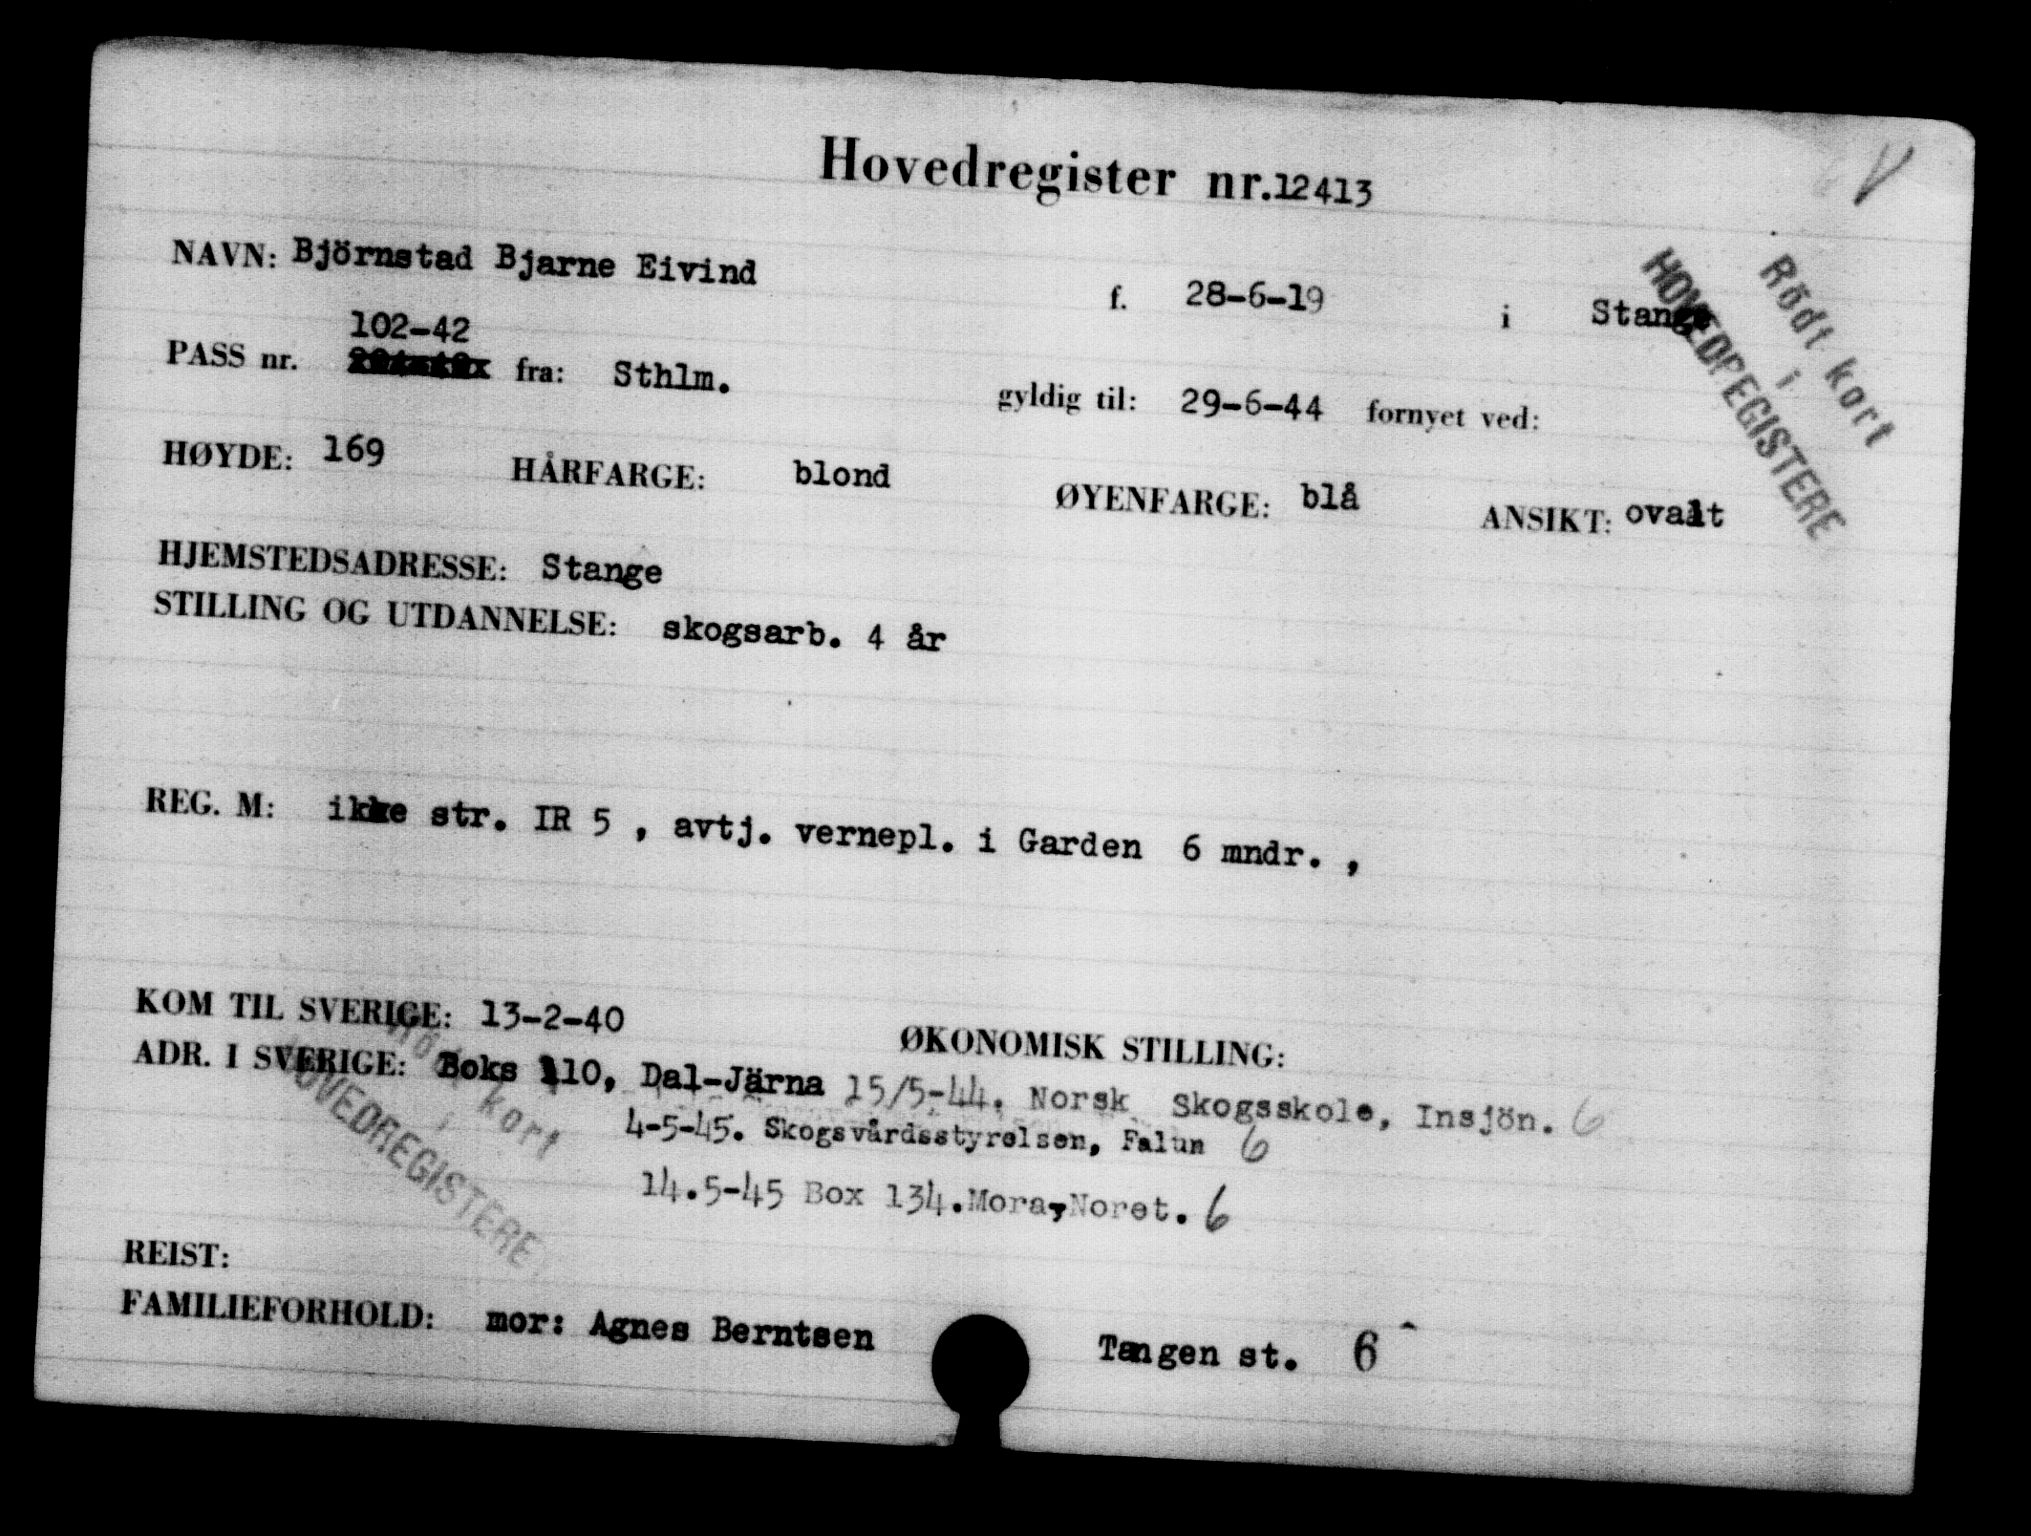 Hovedregister nr.12413
V
Rödt kort
i
HOVEDREGISTERE
NAVN: Björnstad Bjarne Eivind f. 28-6-19 i Stange
102-42
PASS nr. fra: Sthlm. gyldig til: 29-6-44 fornyet ved:
HØYDE: 169 HÅRFARGE: blond ØYENFARGE: blå ANSIKT: ovalt
HJEMSTEDSADRESSE: Stange
STILLING OG UTDANNELSE: skogsarb. 4 år
REG. M: ikke str. IR 5 , avtj. vernepl. i Garden 6 mndr. ,
KOM TIL SVERIGE: 13-2-40 ØKONOMISK STILLING:
ADR. I SVERIGE: Boks 110, Dal-Järna 15/5-44. Norsk Skogsskole, Insjön. 6
4-5-45. Skogsvårdsstyrelsen, Falun 6
14.5-45 Box 134.Mora,Noret. 6
Rödt kort
i
HOVEDREGISTERE
REIST:
FAMILIEFORHOLD: mor: Agnes Berntsen Tangen st. 6